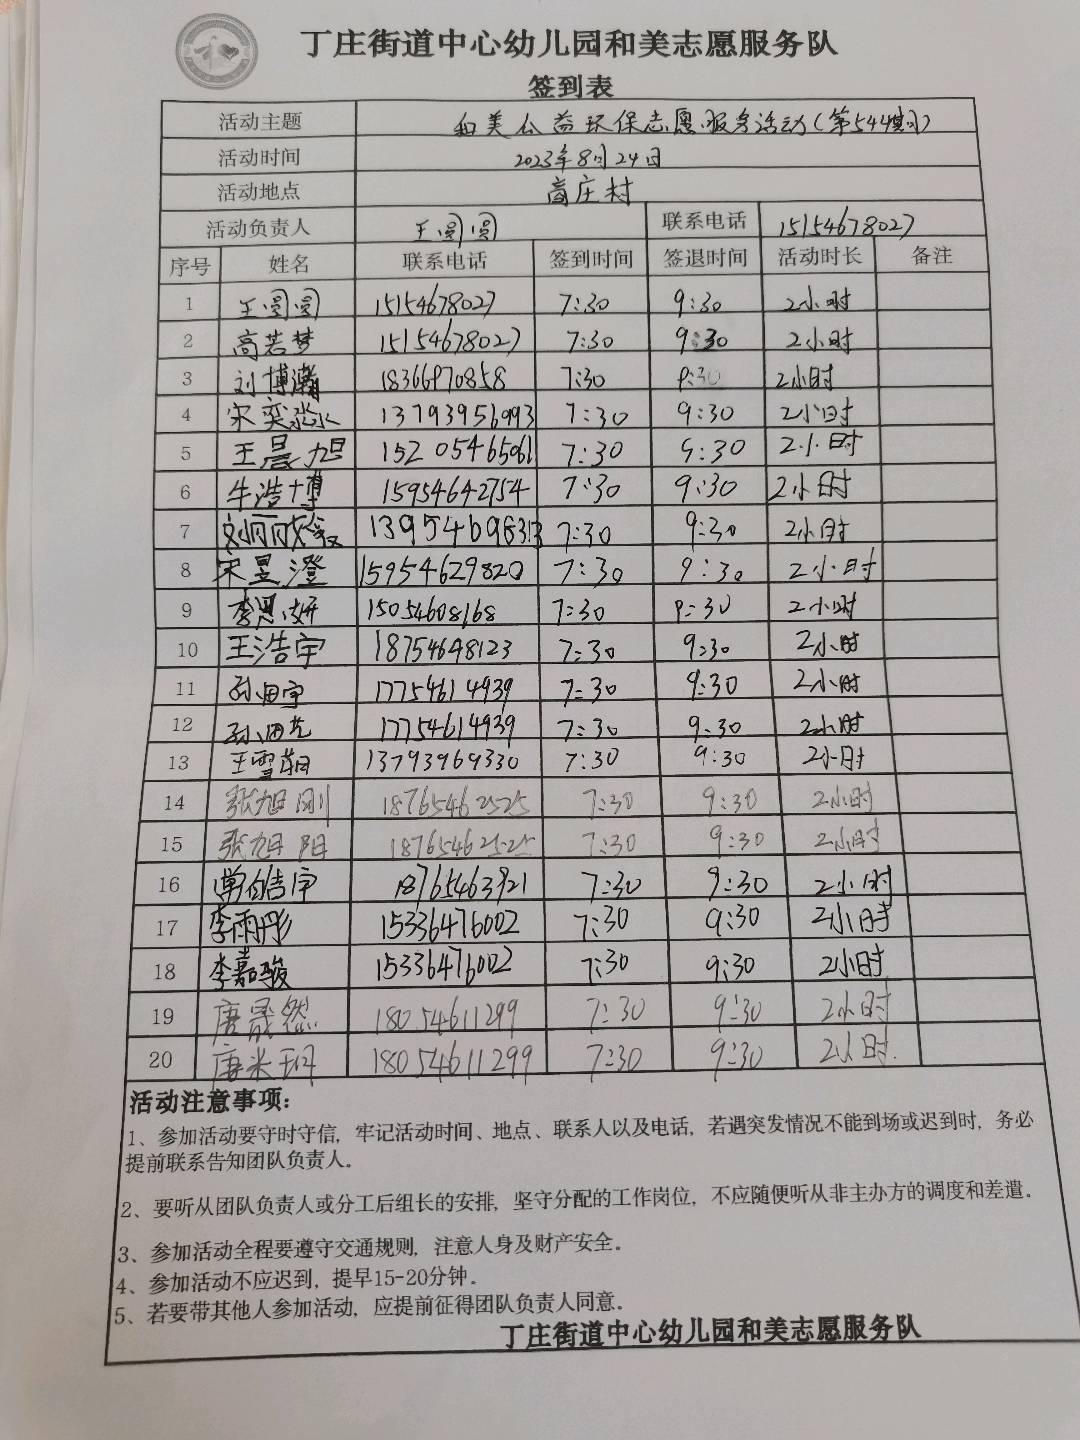 丁庄街道中心幼儿园和美志愿服务队
签到表
活动主题 和美公益环保志愿服务活动(第544期)
活动时间 2023年8月24日
活动地点 高庄村
活动负责人 王圆圆 联系电话 15154678027
序号 姓名 联系电话 签到时间 签退时间 活动时长 备注
1 王圆圆 15154678027 7:30 9:30 2小时
2 高若梦 15154678027 7:30 9:30 2小时
3 刘博瀚 18366970858 7:30 9:30 2小时
4 宋奕淼 13793956993 7:30 9:30 2小时
5 王晨旭 15205465061 7:30 9:30 2小时
6 牛浩博 15954642754 7:30 9:30 2小时
7 7:30 9:30 2小时
8 宋昱澄 15954629820 7:30 9:30 2小时
9 李思妍 15054608168 7:30 9:30 2小时
10 王浩宇 18754648123 7:30 9:30 2小时
11 17754614939 7:30 9:30 2小时
12 17754614939 7:30 9:30 2小时
13 王雪萌 13793969330 7:30 9:30 2小时
14 张旭刚 18765462525 7:30 9:30 2小时
15 张旭阳 18765462525 7:30 9:30 2小时
16 18765463921 7:30 9:30 2小时
17 李雨彤 15336476002 7:30 9:30 2小时
18 李嘉骏 15336476002 7:30 9:30 2小时
19 唐晟然 18054611299 7:30 9:30 2小时
20 唐米珂 18054611299 7:30 9:30 2小时
活动注意事项:
1、参加活动要守时守信,牢记活动时间、地点、联系人以及电话,若遇突发情况不能到场或迟到时,务必
提前联系告知团队负责人。
2、要听从团队负责人或分工后组长的安排,坚守分配的工作岗位,不应随便听从非主办方的调度和差遣。
3、参加活动全程要遵守交通规则,注意人身及财产安全。
4、参加活动不应迟到,提早15-20分钟。
5、若要带其他人参加活动,应提前征得团队负责人同意。
丁庄街道中心幼儿园和美志愿服务队